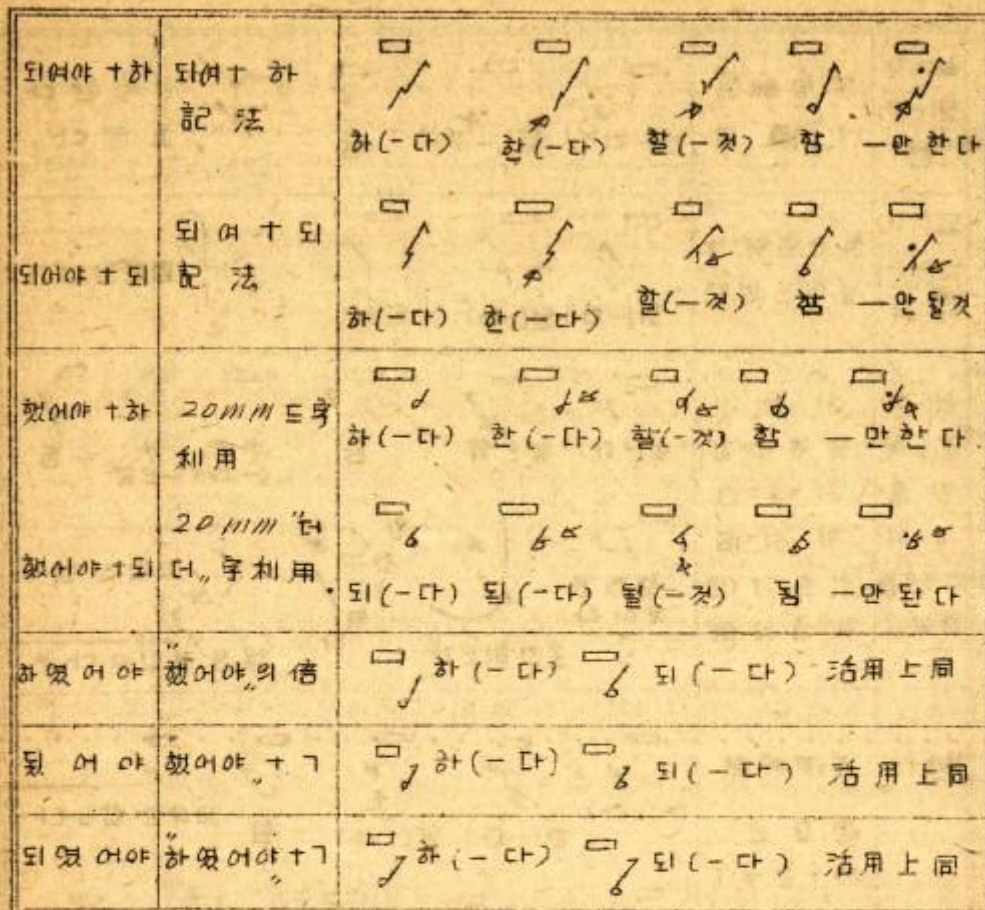 되여야 +하 되여+ 하
記 法
하(-다) 한(-다) 할(-것) 함 -만 한다
되어야 +되 되여+되
記 法
하(-다) 한(-다) 할(-것) 함 -만 될것
했어야 +하 20mm 드字
利用
하(-다) 한(-다) 할(-것) 함 -만 한 다
했어야 +되 20mm "더
더" 字利用.
되(-다) 된(-다) 될(-것) 됨 -만 된다
하였어야 "했어야"의 倍 하(-다) 되(-다) 活用上同
됬 어 야 "했어야" +ㄱ 하(-다) 되(-다) 活用上同
되였어야 "하였어야"+ㄱ 하(-다) 되(-다) 活用上同